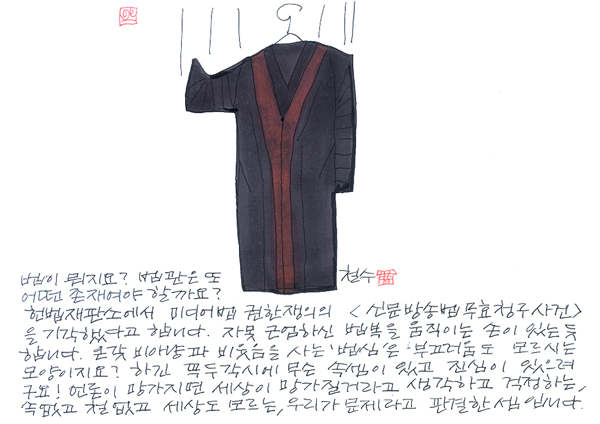 법이 뭐지요? 법관은 또
어떤 존재여야 할까요?
철수
헌법재판소에서 미디어법 권한쟁의의 <신문방송법무효청구사건>
을 기각했다고 합니다. 자못 근엄하신 법복을 움직이는 손이 있는듯
합니다. 온갖 비아냥과 비웃음을 사는 '법심'은 '부끄러움도 모르시는
모양이지요? 하긴 꼭두각시에 무슨 속셈이 있고 진심이 있으려
구요! 언론이 망가지면 세상이 망가질거라고 생각하고 걱정하는,
속없고 철없고 세상도 모르는, 우리가 문제라고 판결한 셈입니다.